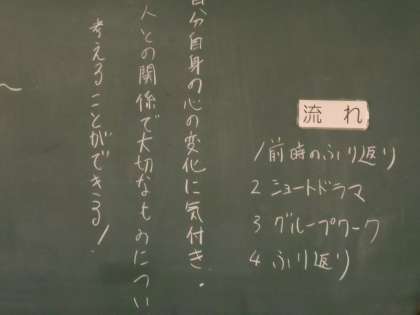 自分自身の心の変化に気付き、
人との関係で大切なものについ
考えることができる!
流れ
1 前時のふり返り
2 ショートドラマ
3 グループワーク
4 ふり返り